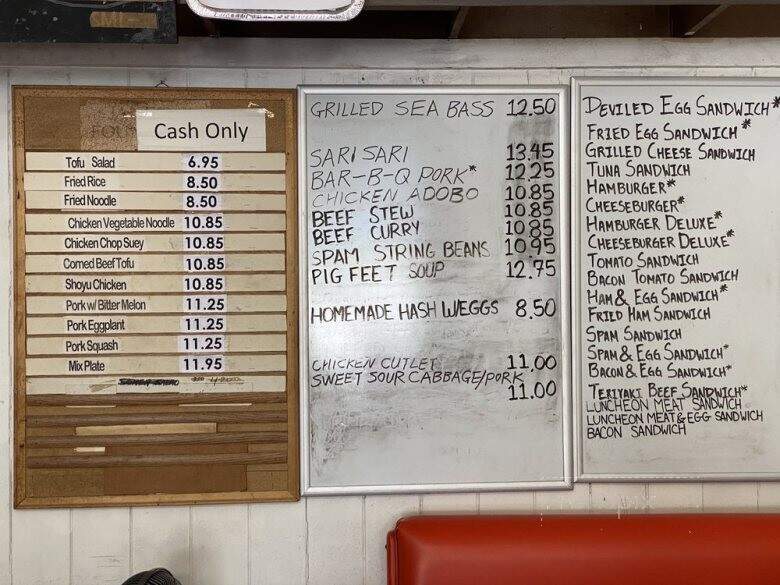 Cash Only
Tofu Salad 6.95
Fried Rice 8.50
Fried Noodle 8.50
Chicken Vegetable Noodle 10.85
Chicken Chop Suey 10.85
Corned Beef Tofu 10.85
Shoyu Chicken 10.85
Pork w/ Bitter Melon 11.25
Pork Eggplant 11.25
Pork Squash 11.25
Mix Plate 11.95
GRILLED SEA BASS 12.50
SARI SARI 13.45
BAR-B-Q PORK* 12.25
CHICKEN ADOBO 10.85
BEEF STEW 10.85
BEEF CURRY 10.85
SPAM STRING BEANS 10.95
PIG FEET SOUP 12.75
HOMEMADE HASH W/EGGS 8.50
CHICKEN CUTLET 11.00
SWEET SOUR CABBAGE/PORK 11.00
DEVILED EGG SANDWICH*
FRIED EGG SANDWICH*
GRILLED CHEESE SANDWICH
TUNA SANDWICH
HAMBURGER*
CHEESEBURGER*
HAMBURGER DELUXE*
CHEESEBURGER DELUXE*
TOMATO SANDWICH
BACON TOMATO SANDWICH
HAM & EGG SANDWICH*
FRIED HAM SANDWICH
SPAM SANDWICH
SPAM & EGG SANDWICH*
BACON & EGG SANDWICH*
TERIYAKI BEEF SANDWICH*
LUNCHEON MEAT SANDWICH
LUNCHEON MEAT & EGG SANDWICH
BACON SANDWICH